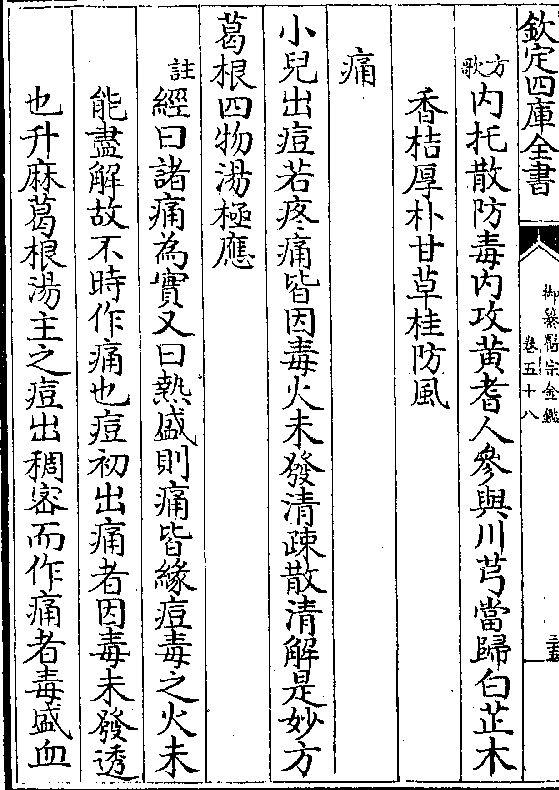 欽定四庫全書
御纂醫宗金鑑
卷五十八
方歌 內托散防毒內攻黄耆人參與川芎當歸白芷木
香桔厚朴甘草桂防風
痛
小兒出痘若疼痛皆因毒火未發清疎散清解是妙方
葛根四物湯極應
註 經曰諸痛為實又曰熱盛則痛皆緣痘毒之火未
能盡解故不時作痛也痘初出痛者因毒未發透
也升麻葛根湯主之痘出稠密而作痛者毒盛血